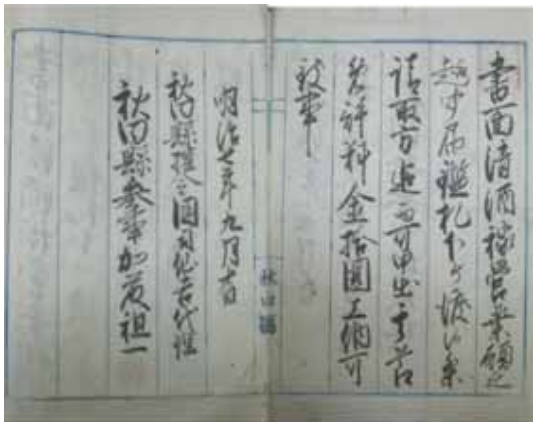 書面清酒稼営業願之
趣聞届鑑札下ケ渡候条
請取方追而可申出其節
免許料金拾圓上納可
致事
明治七年九月十日
秋田縣権令国司仙吉代理
秋田縣参事加藤祖一
秋田縣